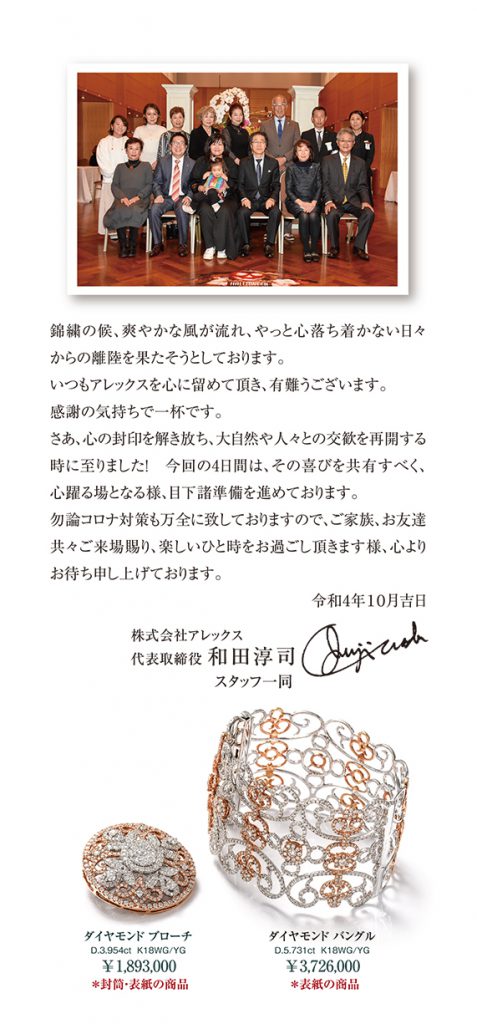 HALLOWEEN
錦繍の候、爽やかな風が流れ、やっと心落ち着かない日々
からの離陸を果たそうとしております。
いつもアレックスを心に留めて頂き、有難うございます。
感謝の気持ちで一杯です。
さあ、心の封印を解き放ち、大自然や人々との交歓を再開する
時に至りました!　今回の4日間は、その喜びを共有すべく、
心躍る場となる様、目下諸準備を進めております。
勿論コロナ対策も万全に致しておりますので、ご家族、お友達
共々ご来場賜り、楽しいひと時をお過ごし頂きます様、心より
お待ち申し上げております。
令和4年10月吉日
株式会社アレックス
代表取締役 和田淳司
スタッフ一同
ダイヤモンド ブローチ
D.3.954ct K18WG/YG
￥1,893,000
*封筒・表紙の商品
ダイヤモンド バングル
D.5.731ct K18WG/YG
￥3,726,000
*表紙の商品